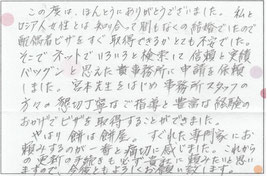 この度は、ほんとうにありがとうございました。私と
ロシア人女性とは知り合って間もなくの結婚でしたので
配偶者ビザをすぐ取得できるかとても不安でした。
そこでネットでいろいろと検索して信頼と実績
バツグンと思えた貴事務所に申請を依頼
しました。宮本先生をはじめ事務所スタッフの
方々の懇切丁寧なご指導と豊富な経験の
おかげでビザを取得することができました。
やはり餅は餅屋。すぐれた専門家にお
頼みするのが一番と痛切に感じました。これから
の更新の手続きも必ず貴社に頼みたいと思い
ますので、今後ともよろしくお願い致します。